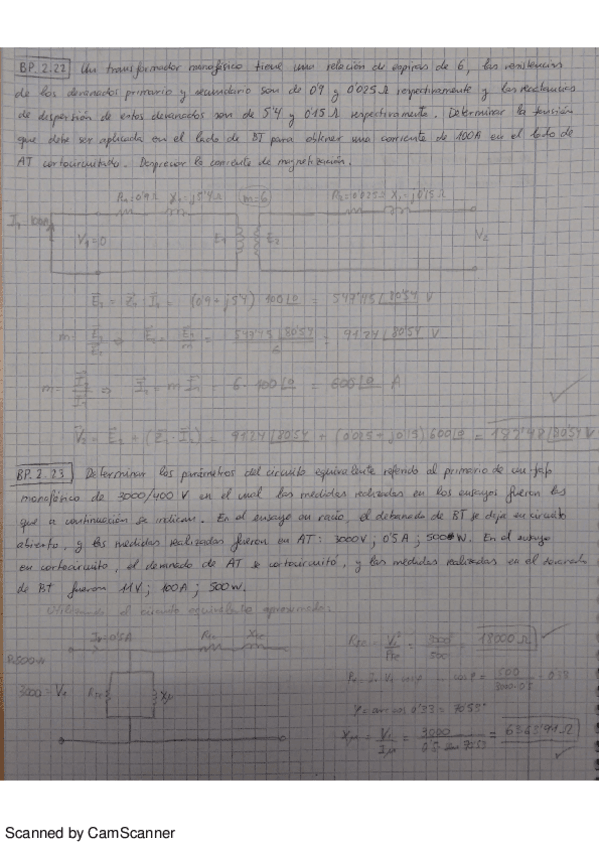 BP. 2.22 Un transformador monofásico tiene una relación de espiras de 6, las resistencias
de los devanados primario y secundario son de 0'9 y 0'025 Ω respectivamente y las reactancias
de dispersión de estos devanados son de 5'4 y 0'15 Ω respectivamente. Determinar la tensión
que debe ser aplicada en el lado de BT para obtener una corriente de 100A en el lado de
AT cortocircuitado. Despreciar la corriente de magnetización.
R₁=0'9Ω X₁=j5'4Ω m=6 R₂=0'025Ω X₂=j0'15Ω
I₁=100A
V₁=0 E₁ E₂ V₂
E₁ = Z₁ · I₁ = (0'9 + j5'4) 100∠0 = 547'45∠80'54 V
m = E₁/E₂ ⇒ E₂ = E₁/m = 547'45∠80'54 / 6 = 91'24∠80'54 V
m = I₂/I₁ ⇒ I₂ = m I₁ = 6 · 100∠0 = 600∠0 A
V₂ = E₂ + (Z₂ · I₂) = 91'24∠80'54 + (0'025 + j0'15) 600∠0 = 182'48∠80'54 V
BP. 2.23 Determinar los parámetros del circuito equivalente referido al primario de un trafo
monofásico de 3000/400 V en el cual las medidas realizadas en los ensayos fueron las
que a continuación se indican. En el ensayo en vacío, el devanado de BT se deja en circuito
abierto, y las medidas realizadas fueron en AT: 3000V; 0'5A; 500W. En el ensayo
en cortocircuito, el devanado de AT se cortocircuitó, y las medidas realizadas en el
de BT fueron 11V; 100A; 500W.
Utilizamos el circuito equivalente aproximado:
I₀=0'5A Rcc Xcc
P₀=500W
3000 = V₁ Xμ
= 18000 Ω
P₀ = I₀ V₁ cos φ cos φ = 500 / 3000·0'5 = 0'33
φ = arc cos 0'33 = 70'53°
Xμ = V₁/Iμ = 3000 / 0'5 · sen 70'53 =